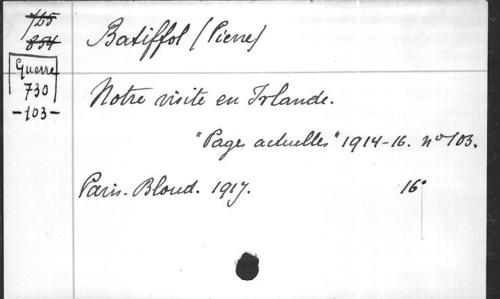 765
854
Guerre
730
-103-
Batiffol (Pierre)
Notre visite en Irlande.
"Pages actuelles" 1914-16. n° 103.
Paris. Bloud. 1917. 16°